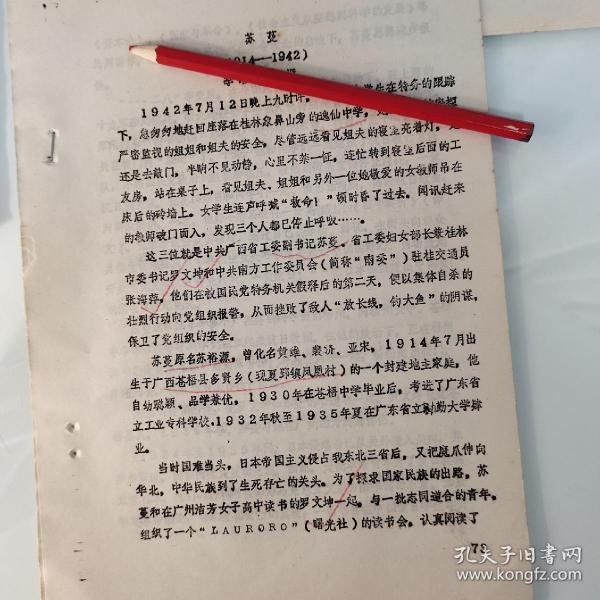 苏蔓
914—1942)
1942年7月12日晚上九时许,
学生在特务的跟踪
下,急匆匆地赶回座落在桂林象鼻山旁的逸仙中学,
严密监视的姐姐和姐夫的安全,尽管远远看见姐夫的寝室亮着灯,
还是去敲门,半晌不见动静,心里不禁一怔,连忙转到寝室后面的工
友房,站在桌子上,看见姐夫、姐姐和另外一位她敬爱的女教师吊在
床后的砖墙上。女学生连声呼喊“救命!”顿时昏了过去。闻讯赶来
的教师破门而入,发现三个人都已停止呼吸……。
这三位就是中共广西省工委副书记苏蔓、省工委妇女部长兼桂林
市委书记罗文坤和中共南方工作委员会(简称“南委”)驻桂交通员
张海萍,他们在被国民党特务机关假释后的第二天,便以集体自杀的
壮烈行动向党组织报警,从而挫败了敌人“放长线,钓大鱼”的阴谋,
保卫了党组织的安全。
苏蔓原名苏裕源,曾化名黄维、裴济、亚宋,1914年7月出
生于广西苍梧县多贤乡(现夏郢镇凤凰村)的一个封建地主家庭,他
自幼聪颖、品学兼优,1930年在苍梧中学毕业后,考进了广东省
立工业专科学校,1932年秋至1935年夏在广东省立勷勤大学肄
业。
当时国难当头,日本帝国主义侵占我东北三省后,又把魔爪伸向
华北,中华民族到了生死存亡的关头。为了探求国家民族的出路,苏
蔓和在广州洁芳女子高中读书的罗文坤一起,与一批志同道合的青年,
组织了一个“LAURORO”(曙光社)的读书会。认真阅读了
79
孔夫子旧书网
www.kongfz.com